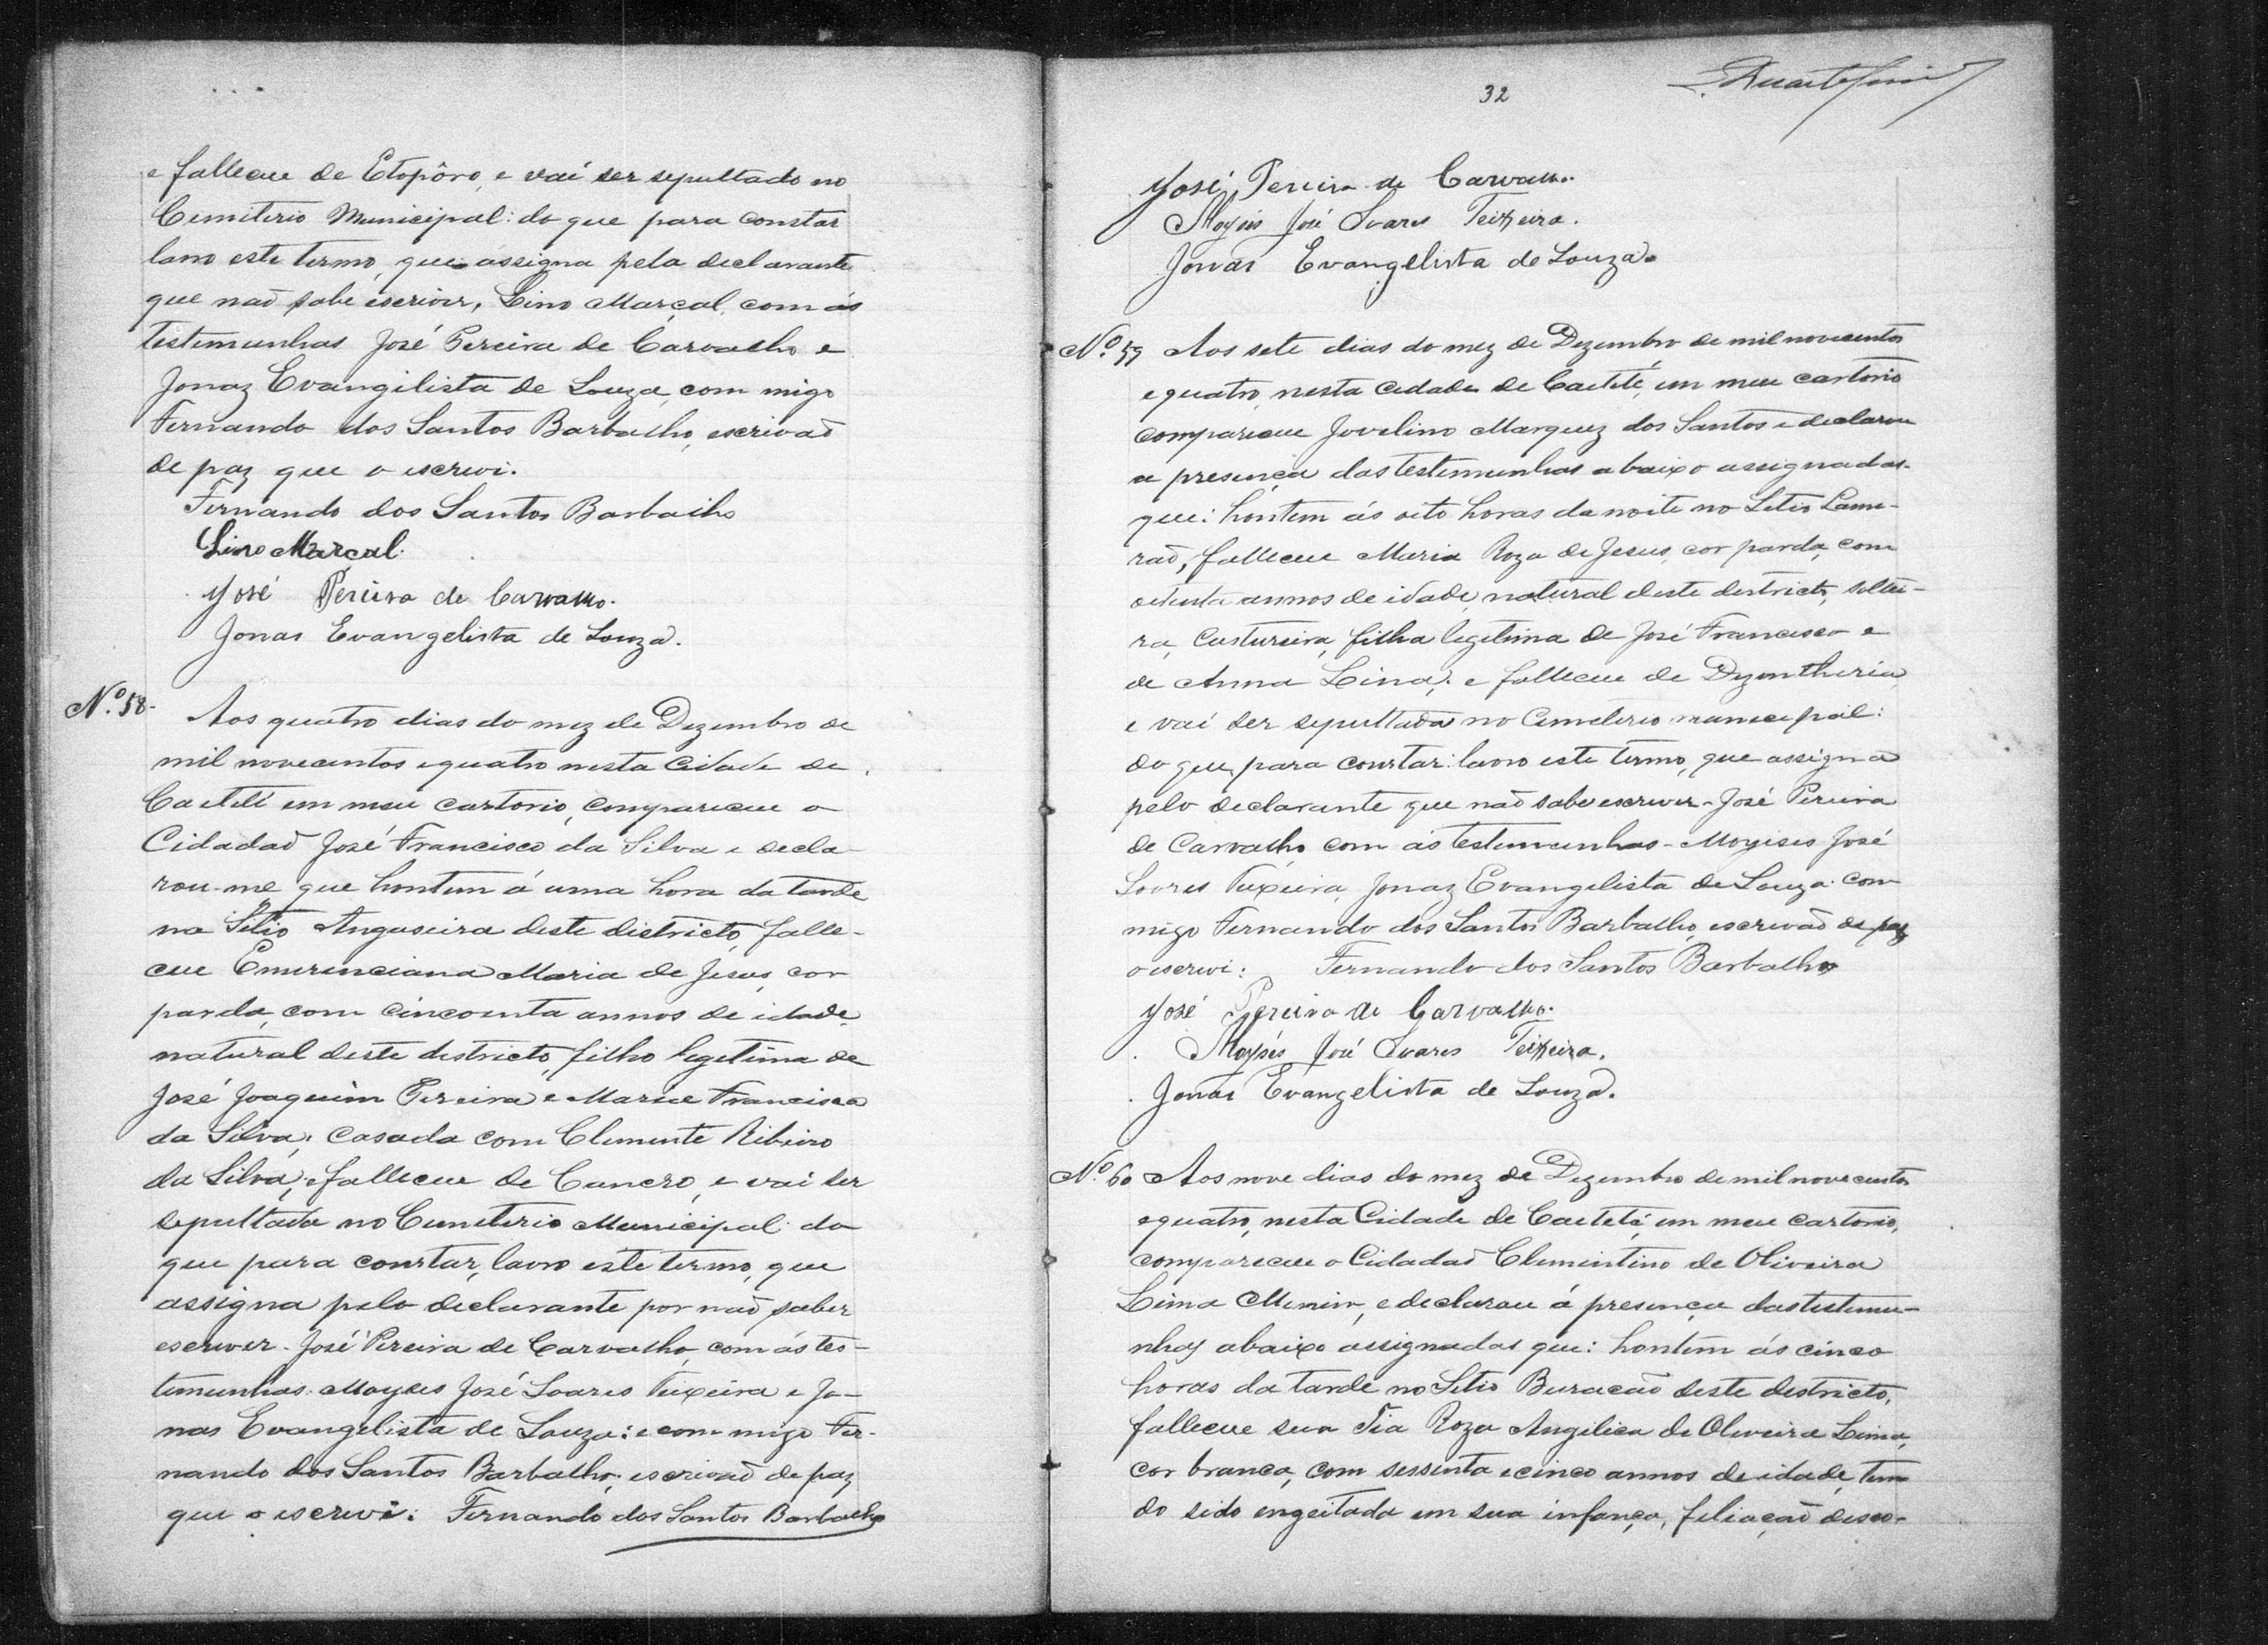 e falleceu de Etopôro, e vai ser sepultado no
Cemiterio Municipal: do que para constar
lavro este termo, que assigna pela declarante
que naõ sabe escriver, Lino Marçal, com ás
testemunhas José Pereira de Carvalho e
Jonaz Evangilista de Souza, com migo
Fernando dos Santos Barbalho, escrivaõ
de paz que o escrevi.
Fernando dos Santos Barbalho
Lino Marcal.
José Pereira de Carvalho.
Jonas Evangelista de Souza.
Nº. 58-
Aos quatro dias do mez de Dezembro de
mil novecentos e quatro nesta Cidade de
Caeteté em meu cartorio, compareceu o
Cidadaõ José Francisco da Silva e decla-
rou-me que hontem á uma hora da tarde
no Sitio Angaseira deste districto, falle-
ceu Emerenciana Maria de Jesus, cor
parda, com cincoenta annos de idade,
natural deste districto, filha legetima de
José Joaquim Pereira e Maria Francisca
da Silva; Casada com Clemente Ribeiro
da Silva; e falleceu de Cancro, e vai ser
sepultada no Cemiterio Municipal: do
que para constar, lavro este termo, que
assigna pelo declarante por naõ saber
escrever - José Pereira de Carvalho, com ás tes-
temunhas Moyses José Soares Teixeira e Jo-
nas Evangelista de Souza: e com migo Fer-
nando dos Santos Barbalho, escrivaõ de paz
que o escrevi: Fernando dos Santos Barbalho
32
José Pereira de Carvalho.
Moysés José Soares Teixeira.
Jonas Evangelista de Souza.
Nº. 59 Aos sete dias do mez de Dezembro de mil novecentos
e quatro, nesta Cidade de Caeteté, em meu cartorio
compareceu Jovelino Marquez dos Santos e declarou
a presença das testemunhas abaixo assignadas
que: hontem ás oito horas da noite no Setio Lame-
raõ, falleceu Maria Roza de Jesus, cor parda, com
oitenta annos de idade, natural deste destricto, soltei-
ra, Custureira, filha legitima de José Francisco e
de Anna Lina; e falleceu de Dyzentheria
e vai ser sepultada no Cemeterio municipal:
do que, para constar: lavro este termo, que assigna
pelo declarante que naõ sabe escrever - José Pereira
de Carvalho com ás testemunhas - Moyises José
Soares Teixeira, Jonaz Evangelista de Souza: com
migo Fernando dos Santos Barbalho, escrivaõ de paz
o escrevi: Fernando dos Santos Barbalho
José Pereira de Carvalho.
Moysés José Soares Teixeira.
Jonas Evangelista de Souza.
Nº. 60 Aos nove dias do mez de Dezembro de mil novecentos
e quatro, nesta Cidade de Caeteté, em meu cartorio,
compareceu o Cidadaõ Clementino de Oliveira
Lima e declarou á presença das testemu-
nhas abaixo assignadas que: hontem ás cinco
horas da tarde no Setio Buracaõ deste destricto,
falleceu sua Tia Roza Angilica de Oliveira Lima,
cor branca, com sessenta e cinco annos de idade, ten-
do sido engeitada em sua infança, filiaçaõ desco-